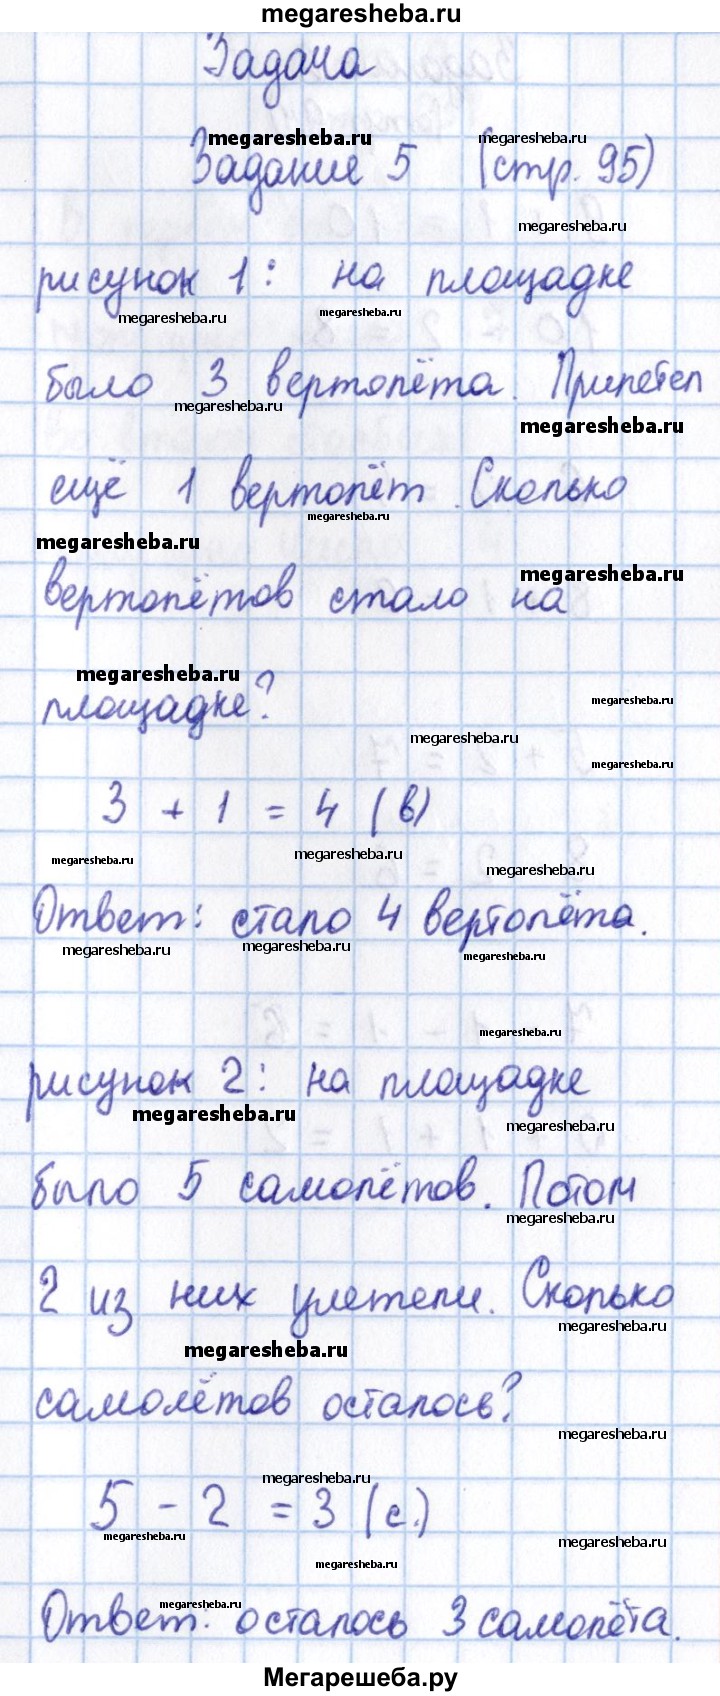 megaresheba.ru
Задача
megaresheba.ru
megaresheba.ru
Задание 5 (стр. 95)
megaresheba.ru
рисунок 1: на площадке
megaresheba.ru
megaresheba.ru
было 3 вертолёта. Прилетел
megaresheba.ru
megaresheba.ru
ещё 1 вертолёт. Сколько
megaresheba.ru
megaresheba.ru
megaresheba.ru
вертолётов стало на
megaresheba.ru
megaresheba.ru
площадке?
megaresheba.ru
megaresheba.ru
3 + 1 = 4 (в)
megaresheba.ru
megaresheba.ru
megaresheba.ru
Ответ: стало 4 вертолёта.
megaresheba.ru
megaresheba.ru
megaresheba.ru
megaresheba.ru
рисунок 2: на площадке
megaresheba.ru
megaresheba.ru
было 5 самолётов. Потом
megaresheba.ru
2 из них улетели. Сколько
megaresheba.ru
megaresheba.ru
самолётов осталось?
megaresheba.ru
megaresheba.ru
5 - 2 = 3 (с.)
megaresheba.ru
megaresheba.ru
megaresheba.ru
megaresheba.ru
Ответ: осталось 3 самолёта.
Мегарешеба.ру